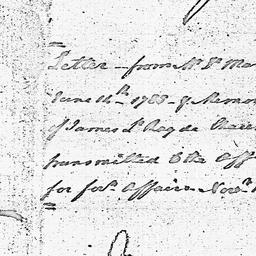 Letter - from Mr St Mar
June 14th 1788 - & Memor
of James Le Ray de Chau
transmitted to the Off
for forn Affairs Novr 1